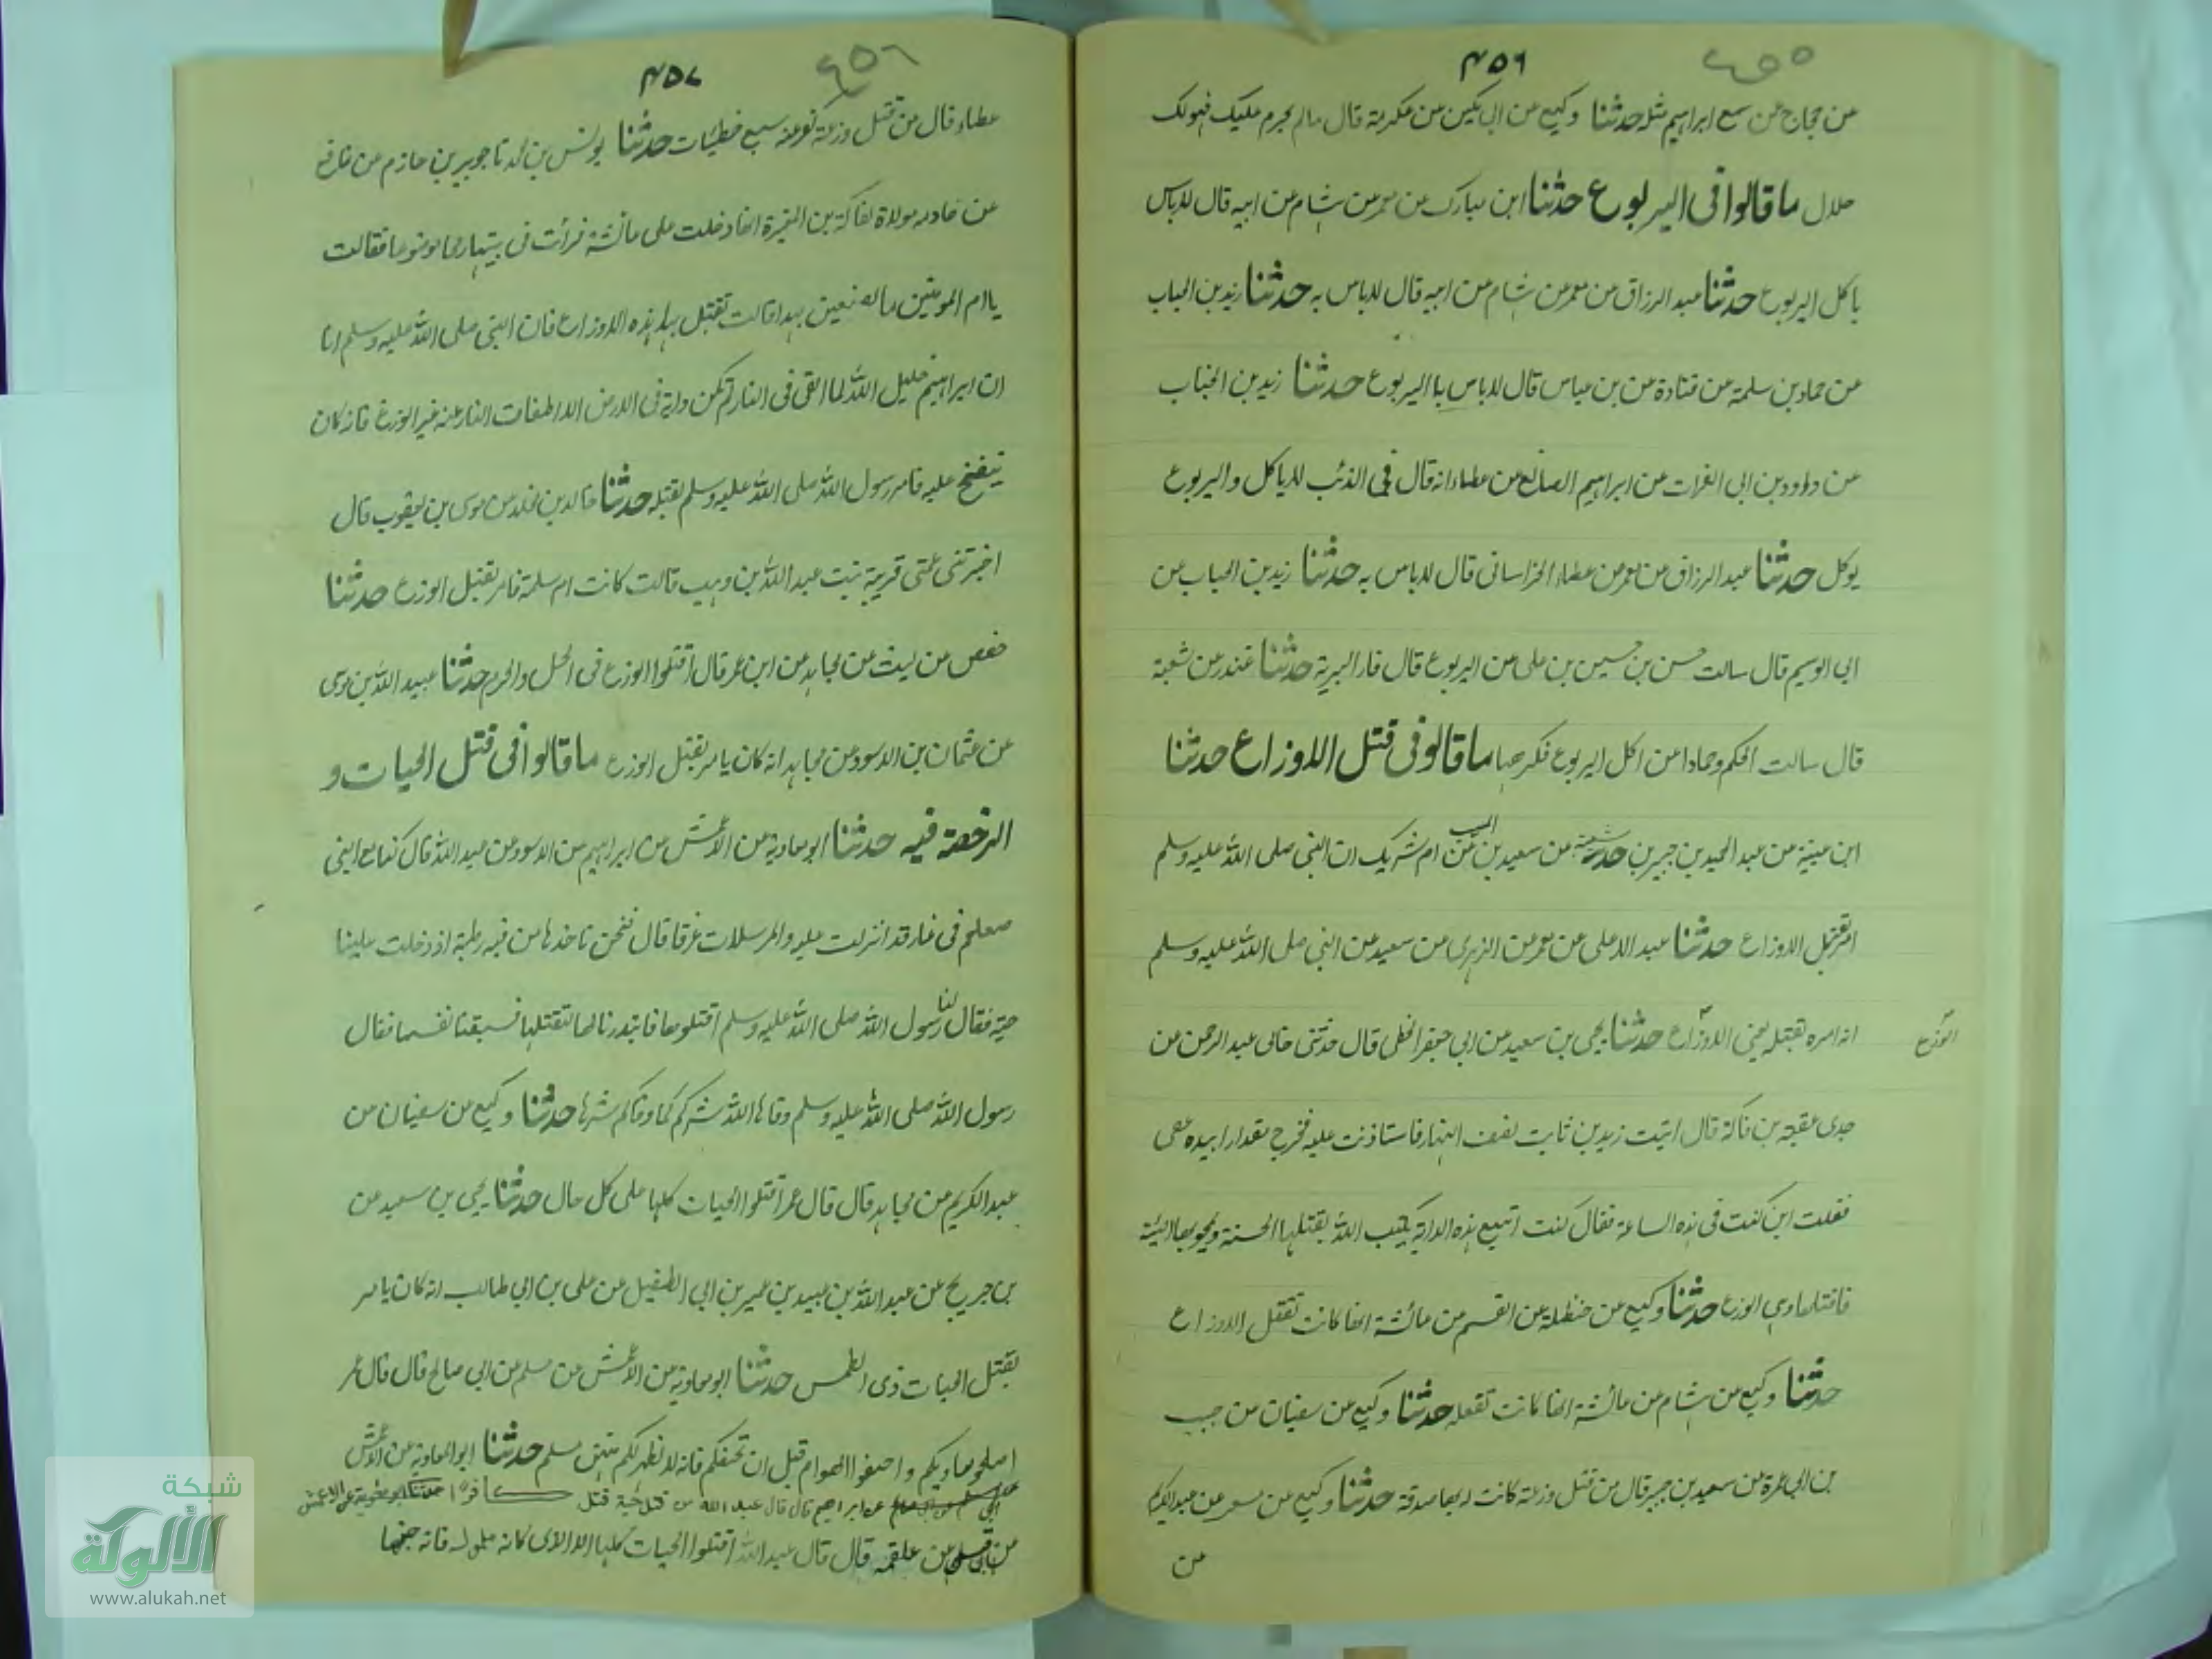 ٤٥٥
٤٥٦
من حجاج عن سمع ابراهيم مثله حدثنا وكيع عن ابي مكين عن عكرمة قال مالم يحرم عليك فهو لك
حلال ما قالوا فى اليربوع حدثنا ابن مبارك عن معمر عن هشام عن ابيه قال لاباس
باكل اليربوع حدثنا عبد الرزاق عن معمر عن هشام عن ابيه قال لاباس به حدثنا زيد بن الحباب
عن حماد بن سلمة عن قتادة عن بن عباس قال لاباس باليربوع حدثنا زيد بن الحباب
عن داوود بن ابى الفرات عن ابراهيم الصائغ عن عطاء انه قال فى الذئب لاياكل واليربوع
يوكل حدثنا عبد الرزاق عن معمر عن عطاء الخراسانى قال لاباس به حدثنا زيد بن الحباب عن
ابى الوسيم قال سالت حسن بن حسين بن على عن اليربوع قال فار البرية حدثنا غندر عن شعبة
قال سالت الحكم وحمادا عن اكل اليربوع فكرها ما قالوفى قتل الاوزاع حدثنا
ابن عيينة عن عبد الحميد بن جبير بن شيبة عن سعيد بن المسيب عن ام شريك ان النبى صلى الله عليه وسلم
امر بقتل الاوزاع حدثنا عبد الاعلى عن معمر عن الزهرى عن سعيد عن النبى صلى الله عليه وسلم
انه امره بقتله يعنى الاوزاع حدثنا يحيى بن سعيد عن ابى جعفر الخطمى قال حدثنى خالى عبد الرحمن عن
الوزع
جدى عقبه بن فاكة قال اتيت زيد بن ثابت نصف النهار فاستاذنت عليه فخرج بيده عصى
فقلت اين كنت فى هذه الساعة فقال كنت اتبع هذه الدابة يكتب الله بقتلها الحسنة ويمحو بها السيئة
فاقتلها وهى الوزع حدثنا وكيع عن حنظلة عن القسم عن عائشة انها كانت تقتل الاوزاع
حدثنا وكيع عن هشام عن عائشة انها كانت تفعله حدثنا وكيع عن سفيان عن حبيب
بن ابى عمرة عن سعيد بن جبير قال من قتل وزعة كانت له بها صدقة حدثنا وكيع عن مسعر عن عبد الكريم
عن
٤٥٦
٤٥٧
عطاء قال من قتل وزعة كفر عنه سبع خطيئات حدثنا يونس بن محمد نا جرير بن حازم عن نافع
عن مولاة لفاكة بن المغيرة انها دخلت على عائشة فرأت فى بيتها رمحا موضوعا فقالت
يا ام المومنين ما تصنعين بهذا قالت تقتل به هذه الاوزاع فان النبى صلى الله عليه وسلم انا
ان ابراهيم خليل الله لما القى فى النار لم تكن دابة فى الارض الا اطفات النار عنه غير الوزغ فانه كان
ينفخ عليه فامر رسول الله صلى الله عليه وسلم بقتله حدثنا خالد بن مخلد عن موسى بن يعقوب قال
اخبرتنى عمتى قريبة بنت عبد الله بن وهب قالت كانت ام سلمة تامر بقتل الوزع حدثنا
حفص عن ليث عن مجاهد عن ابن عمر قال اقتلوا الوزع فى الحل والحرم حدثنا عبيد الله بن موسى
عن عثمان بن الاسود عن مجاهد انه كان يامر بقتل الوزع ما قالوا فى قتل الحيات و
الرخصة فيه حدثنا ابو معاوية عن الاعمش عن ابراهيم عن الاسود عن عبد الله قال كنا مع النبى
صعلم فى غار قد انزلت عليه والمرسلات عرفا قال فنحن ناخذها من فيه رطبة اذ دخلت علينا
حية فقال لنا رسول الله صلى الله عليه وسلم اقتلوها فابتدرنا لها لنقتلها فسبقتنا نفسها فقال
رسول الله صلى الله عليه وسلم وقاها الله شركم كما وقاكم شرها حدثنا وكيع عن سفيان عن
عبد الكريم عن مجاهد قال قال عمر اقتلوا الحيات كلها على كل حال حدثنا يحيى بن سعيد عن
بن جريج عن عبد الله بن عبيد بن عمير بن ابى الطفيل عن على بن ابى طالب انه كان يامر
بقتل الحيات ذى الطمس حدثنا ابو معاوية عن الاعمش عن مسلم عن ابى صالح قال قال عمر
اصلحوا مثاويكم و الهوام قبل ان تخيفكم فانه لا يظهر لكم مسلم حدثنا ابو المعاوية عن الاعمش
عن ابراهيم قال قال عبد الله من قتل حية قتل كافرا حدثنا ابو معوية عن الاعمش
عن علقمة قال قال عبد الله اقتلوا الحيات كلها الا الذى كانه ملول فانه جنها
شبكة
الألوكة
www.alukah.net